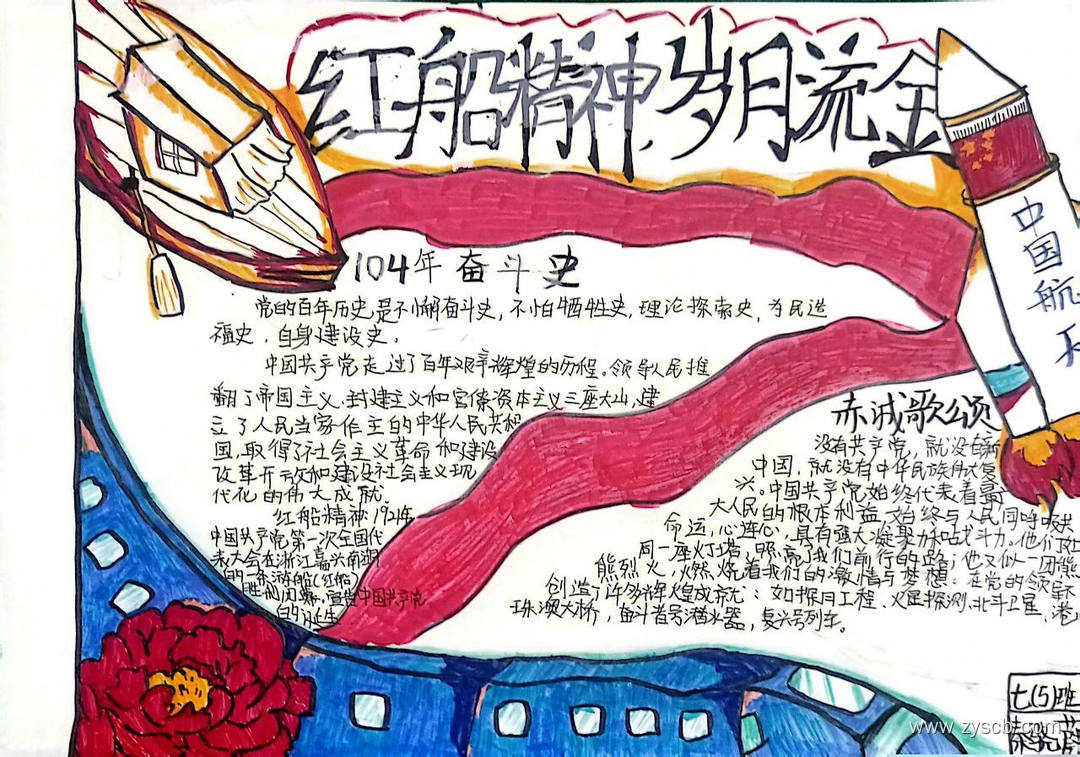 红船精神,岁月流金
中国航天
104年奋斗史
党的百年历史是不懈奋斗史,不怕牺牲史,理论探索史,为民造
福史,自身建设史。
中国共产党走过了百年艰辛辉煌的历程。领导人民推
翻了帝国主义、封建主义和官僚资本主义三座大山,建
立了人民当家作主的中华人民共和
国,取得了社会主义革命和建设
改革开放和建设社会主义现
代化的伟大成就。
红船精神1921年
中国共产党第一次全国代
表大会在浙江嘉兴南湖
的一条游船(红船)
胜利闭幕,宣告中国共产党
的诞生
赤诚歌颂
没有共产党,就没有新
中国,就没有中华民族伟大复
兴。中国共产党始终代表着最
大人民的根本利益,始终与人民同呼吸共
命运,心连心,具有强大凝聚力和战斗力。他们
同一座灯塔,照亮了我们前行的路;他又似一团熊
熊烈火,燃烧着我们的激情与梦想:在党的领导下
创造了许多辉煌成就:如探月工程、火星探测、北斗卫星、港
珠澳大桥,奋斗者号潜水器,复兴号列车。
七(5)班
www.zyscb.com